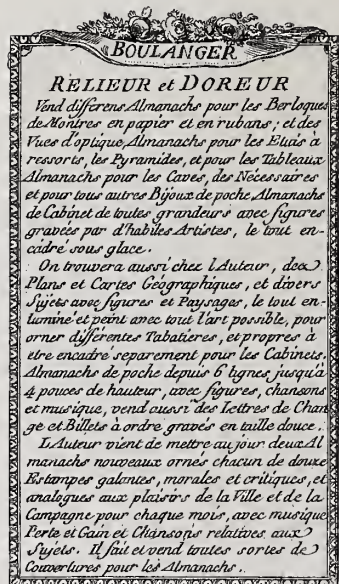 BOULANGER
RELIEUR et DOREUR
Vend differens Almanachs pour les Berloques
de Montres en papier et en rubans; et des
Vues d'optique, Almanachs pour les Etuis à
ressorts, les Pyramides, et pour les Tableaux
Almanachs pour les Caves, des Nécessaires
et pour tous autres Bijoux de poche Almanachs
de Cabinet de toutes grandeurs avec figures
gravées par d'habiles Artistes, le tout en-
cadré sous glace.
On trouvera aussi chez l'Auteur, des
Plans et Cartes Géographiques, et divers
Sujets avec figures et Paysages, le tout en-
luminé et peint avec tout l'art possible, pour
orner différentes Tabatieres, et propres à
etre encadré separement pour les Cabinets.
Almanachs de poche depuis 6 lignes jusqu'à
4 pouces de hauteur, avec figures, chansons
et musique, vend aussi des Lettres de Chan
ge et Billets à ordre gravés en taille douce.
L'Auteur vient de mettre au jour deux Al
manachs nouveaux ornés chacun de douze
Estampes galantes, morales et critiques, et
analogues aux plaisirs de la Ville et de la
Campagne pour chaque mois, avec musique
Perte et Gain et Chansons relatives aux
Sujets. Il fait et vend toutes sortes de
Couvertures pour les Almanachs.